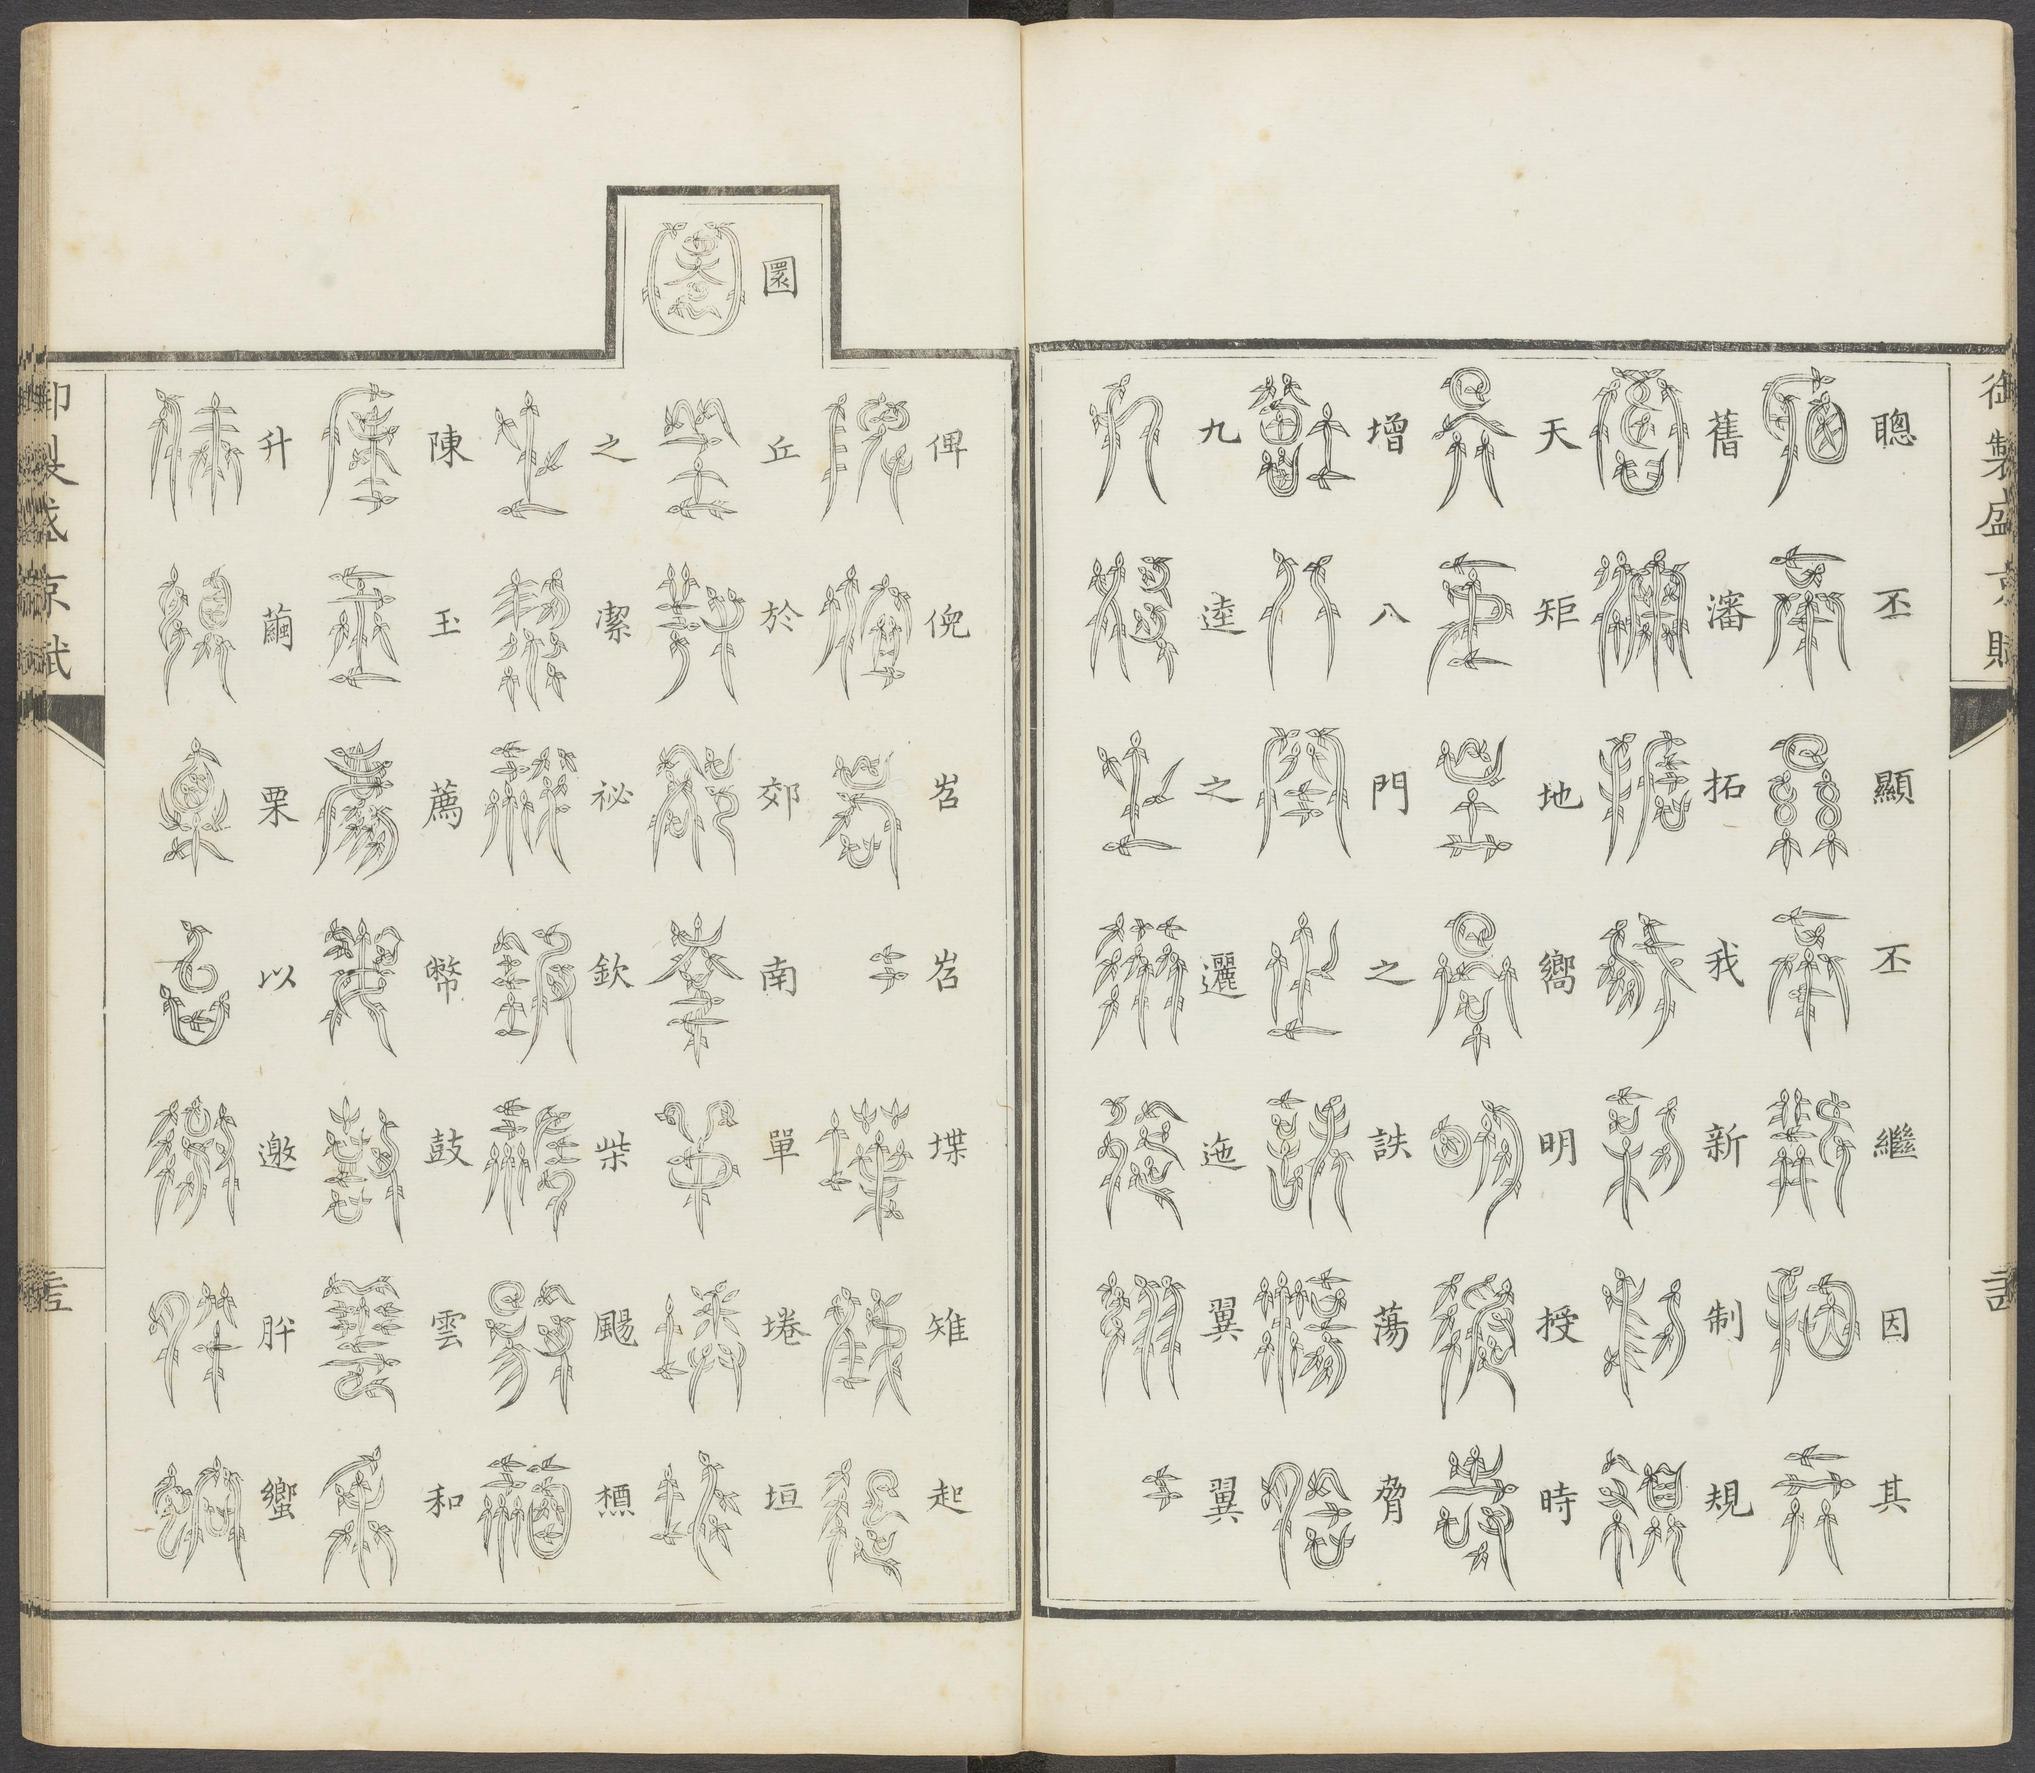 御製盛京賦
聰丕顯丕繼因其
舊瀋拓我新制規
天矩地嚮明授時
增八門之詄蕩脅
九逵之邐迤翼翼
俾倪岧岧堞雉起
圜丘於郊南單墭垣
之潔祕欽柴颺槱
陳玉薦幣鼓雲和
升繭栗以邀肸蠁
御製盛京賦